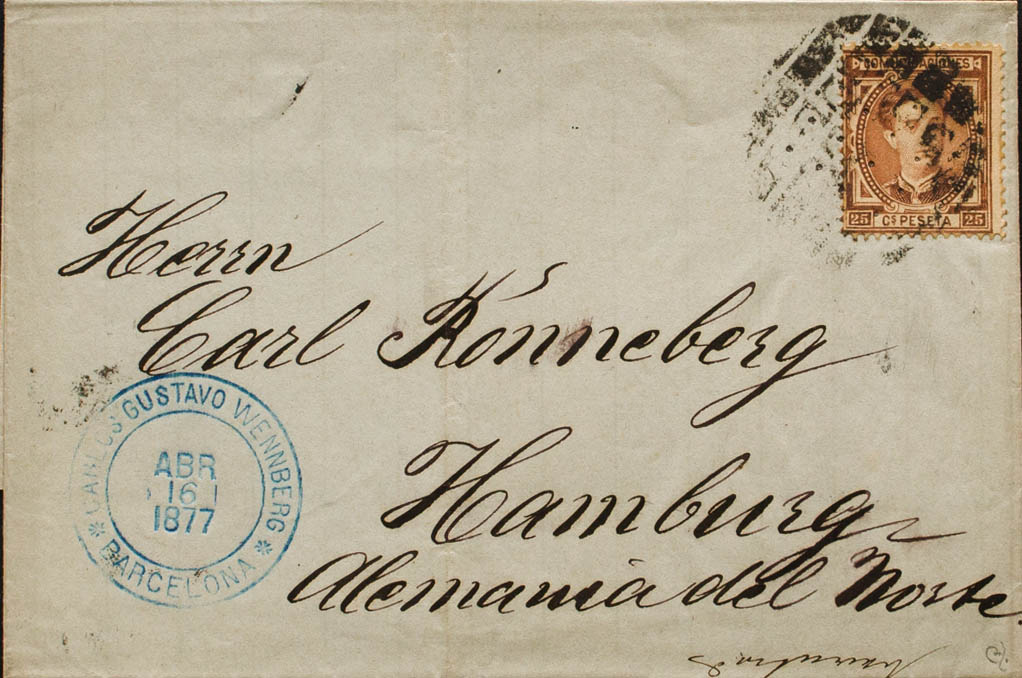 COMUNICACIONES
25 Cs PESETA 25
Herrn
Carl Rönneberg
Hamburg
Alemania del Norte.
CARLOS GUSTAVO WENNBERG
ABR
16
1877
* BARCELONA *